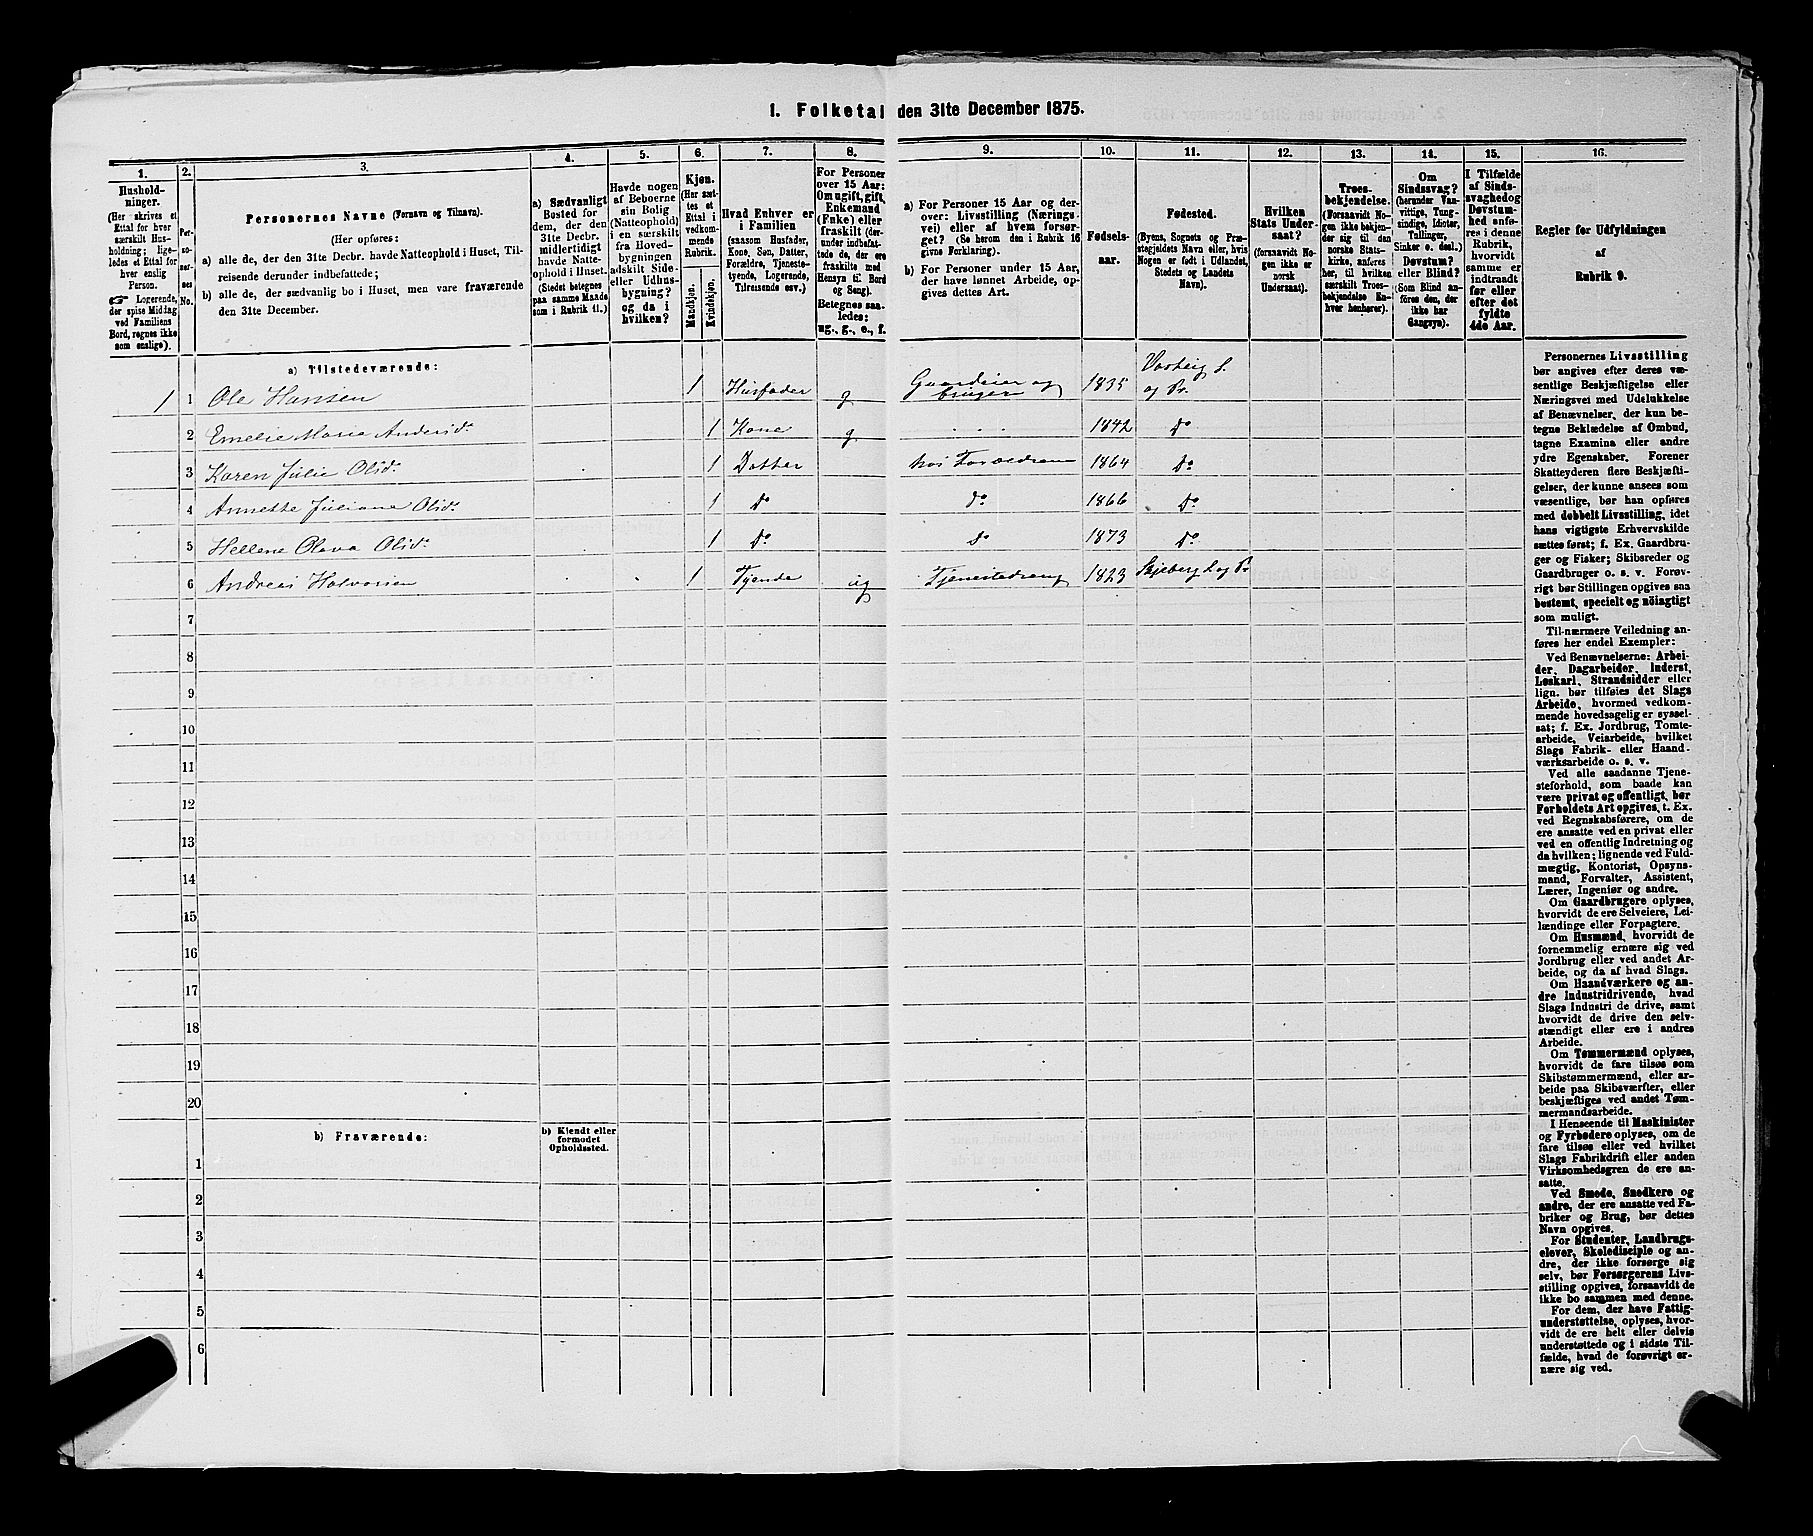 1. Folketal den 31te December 1875.
1.
2.
3.
4.
5.
6.
7.
8.
9.
10.
11.
12.
13.
14.
15.
16.
Hushold-
ninger.
(Her skrives et
Ettal for hver
særskilt Hus-
holdning; lige-
ledes et Ettal for
hver enslig
Person.
☞ Logerende,
der spise Middag
ved Familiens
Bord, regnes ikke
som enslige).
Per-
so-
ner-
nes-
No.
Personernes Navne (Fornavn og Tilnavn).
(Her opføres:
a) alle de, der den 31te Decbr. havde Natteophold i Huset, Til-
reisende derunder indbefattede;
b) alle de, der sædvanlig bo i Huset, men vare fraværende
den 31te December.
a) Sædvanligt
Bosted for
dem, der den
31te Decbr.
midlertidigt
havde Natte-
ophold i Huset.
(Stedet betegnes
paa samme Maade
som i Rubrik 11.)
Havde nogen
af Beboerne
sin Bolig
(Natteophold)
i en særskilt
fra Hoved-
bygningen
adskilt Side-
eller Udhus-
bygning?
og da i
hvilken?
Kjøn.
(Her sæt-
tes et
Ettal i
vedkom-
mende
Rubrik.
Mandkjøn.
Kvindekjøn.
Hvad Enhver er
i Familien
(saasom Husfader,
Kone, Søn, Datter,
Forældre, Tjeneste-
tyende, Logerende,
Tilreisende osv.)
For Personer
over 15 Aar:
Om ugift, gift,
Enkemand
(Enke) eller
fraskilt (der-
under indbefat-
tede de, der ere
fraskilte med
Hensyn til Bord
og Seng).
Betegnes saa-
ledes:
ug., g., e., f.
a) For Personer 15 Aar og der-
over: Livsstilling (Nærings-
vei) eller af hvem forsør-
get? (Se herom den i Rubrik 16
givne Forklaring).
b) For Personer under 15 Aar,
der have lønnet Arbeide, op-
gives dettes Art.
Fødsels-
aar.
Fødested.
(Byens, Sognets og Præ-
stegjeldets Navn eller, hvis
Nogen er født i Udlandet,
Stedets og Landets
Navn).
Hvilken
Stats Under-
saat?
(forsaavidt No-
gen ikke er
norsk
Undersaat).
Troes-
bekjendelse.
(Forsaavidt No-
gen ikke bekjen-
der sig til den
norske Stats-
kirke, anføres
her, til hvilken
særskilt Troes-
bekjendelse En-
hver henhører).
Om
Sindssvag?
(herunder Van-
vittige, Tung-
sindige, Idioter,
Tullinger,
Sinker o. desl.)
Døvstum?
eller Blind?
(Som Blind an-
føres den, der
ikke har
Gangsyn).
I Tilfælde
af Sinds-
svaghed og
Døvstum-
hed anfø-
res i denne
Rubrik,
hvorvidt
samme er
indtraadt
før eller
efter det
fyldte
4de Aar.
Regler for Udfyldningen
af
Rubrik 9.
a) Tilstedeværende:
1 1 Ole Hansen 1 Husfader g Gaardeier og bruger 1835 Varteig S. og Pr.
2 Emelie Marie Andersd. 1 Kone g . . . 1842 Do
3 Karen Julie Olsd. 1 Datter hos Forældrene 1864 Do
4 Annette Juliane Olsd. 1 Do do 1866 Do
5 Hellene Olava Olsd. 1 Do Do 1873 Do
6 Andreas Halvorsen 1 Tyende ug Tjenestedreng 1823 Skjeberg S og Pr
7
8
9
10
11
12
13
14
15
16
17
18
19
20
b) Fraværende:
b) Kjendt eller
formodet
Opholdssted.
1
2
3
4
5
6
Personernes Livsstilling
bør angives efter deres væ-
sentlige Beskjæftigelse eller
Næringsvei med Udelukkelse
af Benævnelser, der kun be-
tegne Beklædelse af Ombud,
tagne Examina eller andre
ydre Egenskaber. Forener
Skatteyderen flere Beskjæfti-
gelser, der kunne ansees som
væsentlige, bør han opføres
med dobbelt Livsstilling, idet
hans vigtigste Erhvervskilde
sættes først; f. Ex. Gaardbru-
ger og Fisker; Skibsreder og
Gaardbruger o. s. v. Forøv-
rigt bør Stillingen opgives saa
bestemt, specielt og nöiagtigt
som muligt.
Til nærmere Veiledning an-
føres her endel Exempler:
Ved Benævnelserne: Arbei-
der, Dagarbeider, Inderst,
Løskarl, Strandsidder eller
lign. bør tilføies det Slags
Arbeide, hvormed vedkom-
mende hovedsagelig er syssel-
sat; f. Ex. Jordbrug, Tomte-
arbeide, Veiarbeide, hvilket
Slags Fabrik- eller Haand-
værksarbeide o. s. v.
Ved alle saadanne Tjene-
steforhold, som baade kan
være privat og offentligt, bør
Forholdets Art opgives, t. Ex.
ved Regnskabsførere, om de
ere ansatte ved en privat eller
ved en offentlig Indretning og
da hvilken; lignende ved Fuld-
mægtig, Kontorist, Opsyns-
mand, Forvalter, Assistent,
Lærer, Ingeniør og andre.
Om Gaardbrugere oplyses,
hvorvidt de ere Selveiere, Lei-
lændinge eller Forpagtere.
Om Husmænd, hvorvidt de
fornemmelig ernære sig ved
Jordbrug eller ved andet Ar-
beide, og da af hvad Slags.
Om Haandværkere og an-
dre Industridrivende, hvad
Slags Industri de drive, samt
hvorvidt de drive den selv-
stændigt eller ere i andres
Arbeide.
Om Tømmermænd oplyses,
hvorvidt de fare tilsøs som
Skibstømmermænd, eller ar-
beide paa Skibsværfter, eller
beskjæftiges ved andet Tøm-
mermandsarbeide.
I Henseende til Maskinister
og Fyrbødere oplyses, om de
fare tilsøs eller ved hvilket
Slags Fabrikdrift eller anden
Virksomhedsgren de ere an-
satte.
Ved Smede, Snedkere og
andre, der ere ansatte ved Fa-
briker og Brug, bør dettes
Navn opgives.
For Studenter, Landbrugs-
elever, Skoledisciple og an-
dre, der ikke forsørge sig
selv, bør Forsørgerens Livs-
stilling opgives, forsaavidt de
ikke bo sammen med denne.
For dem, der have Fattig-
understøttelse, oplyses, hvor-
vidt de ere helt eller delvis
understøttede og i sidste Til-
fælde, hvad de forøvrigt er-
nære sig ved.